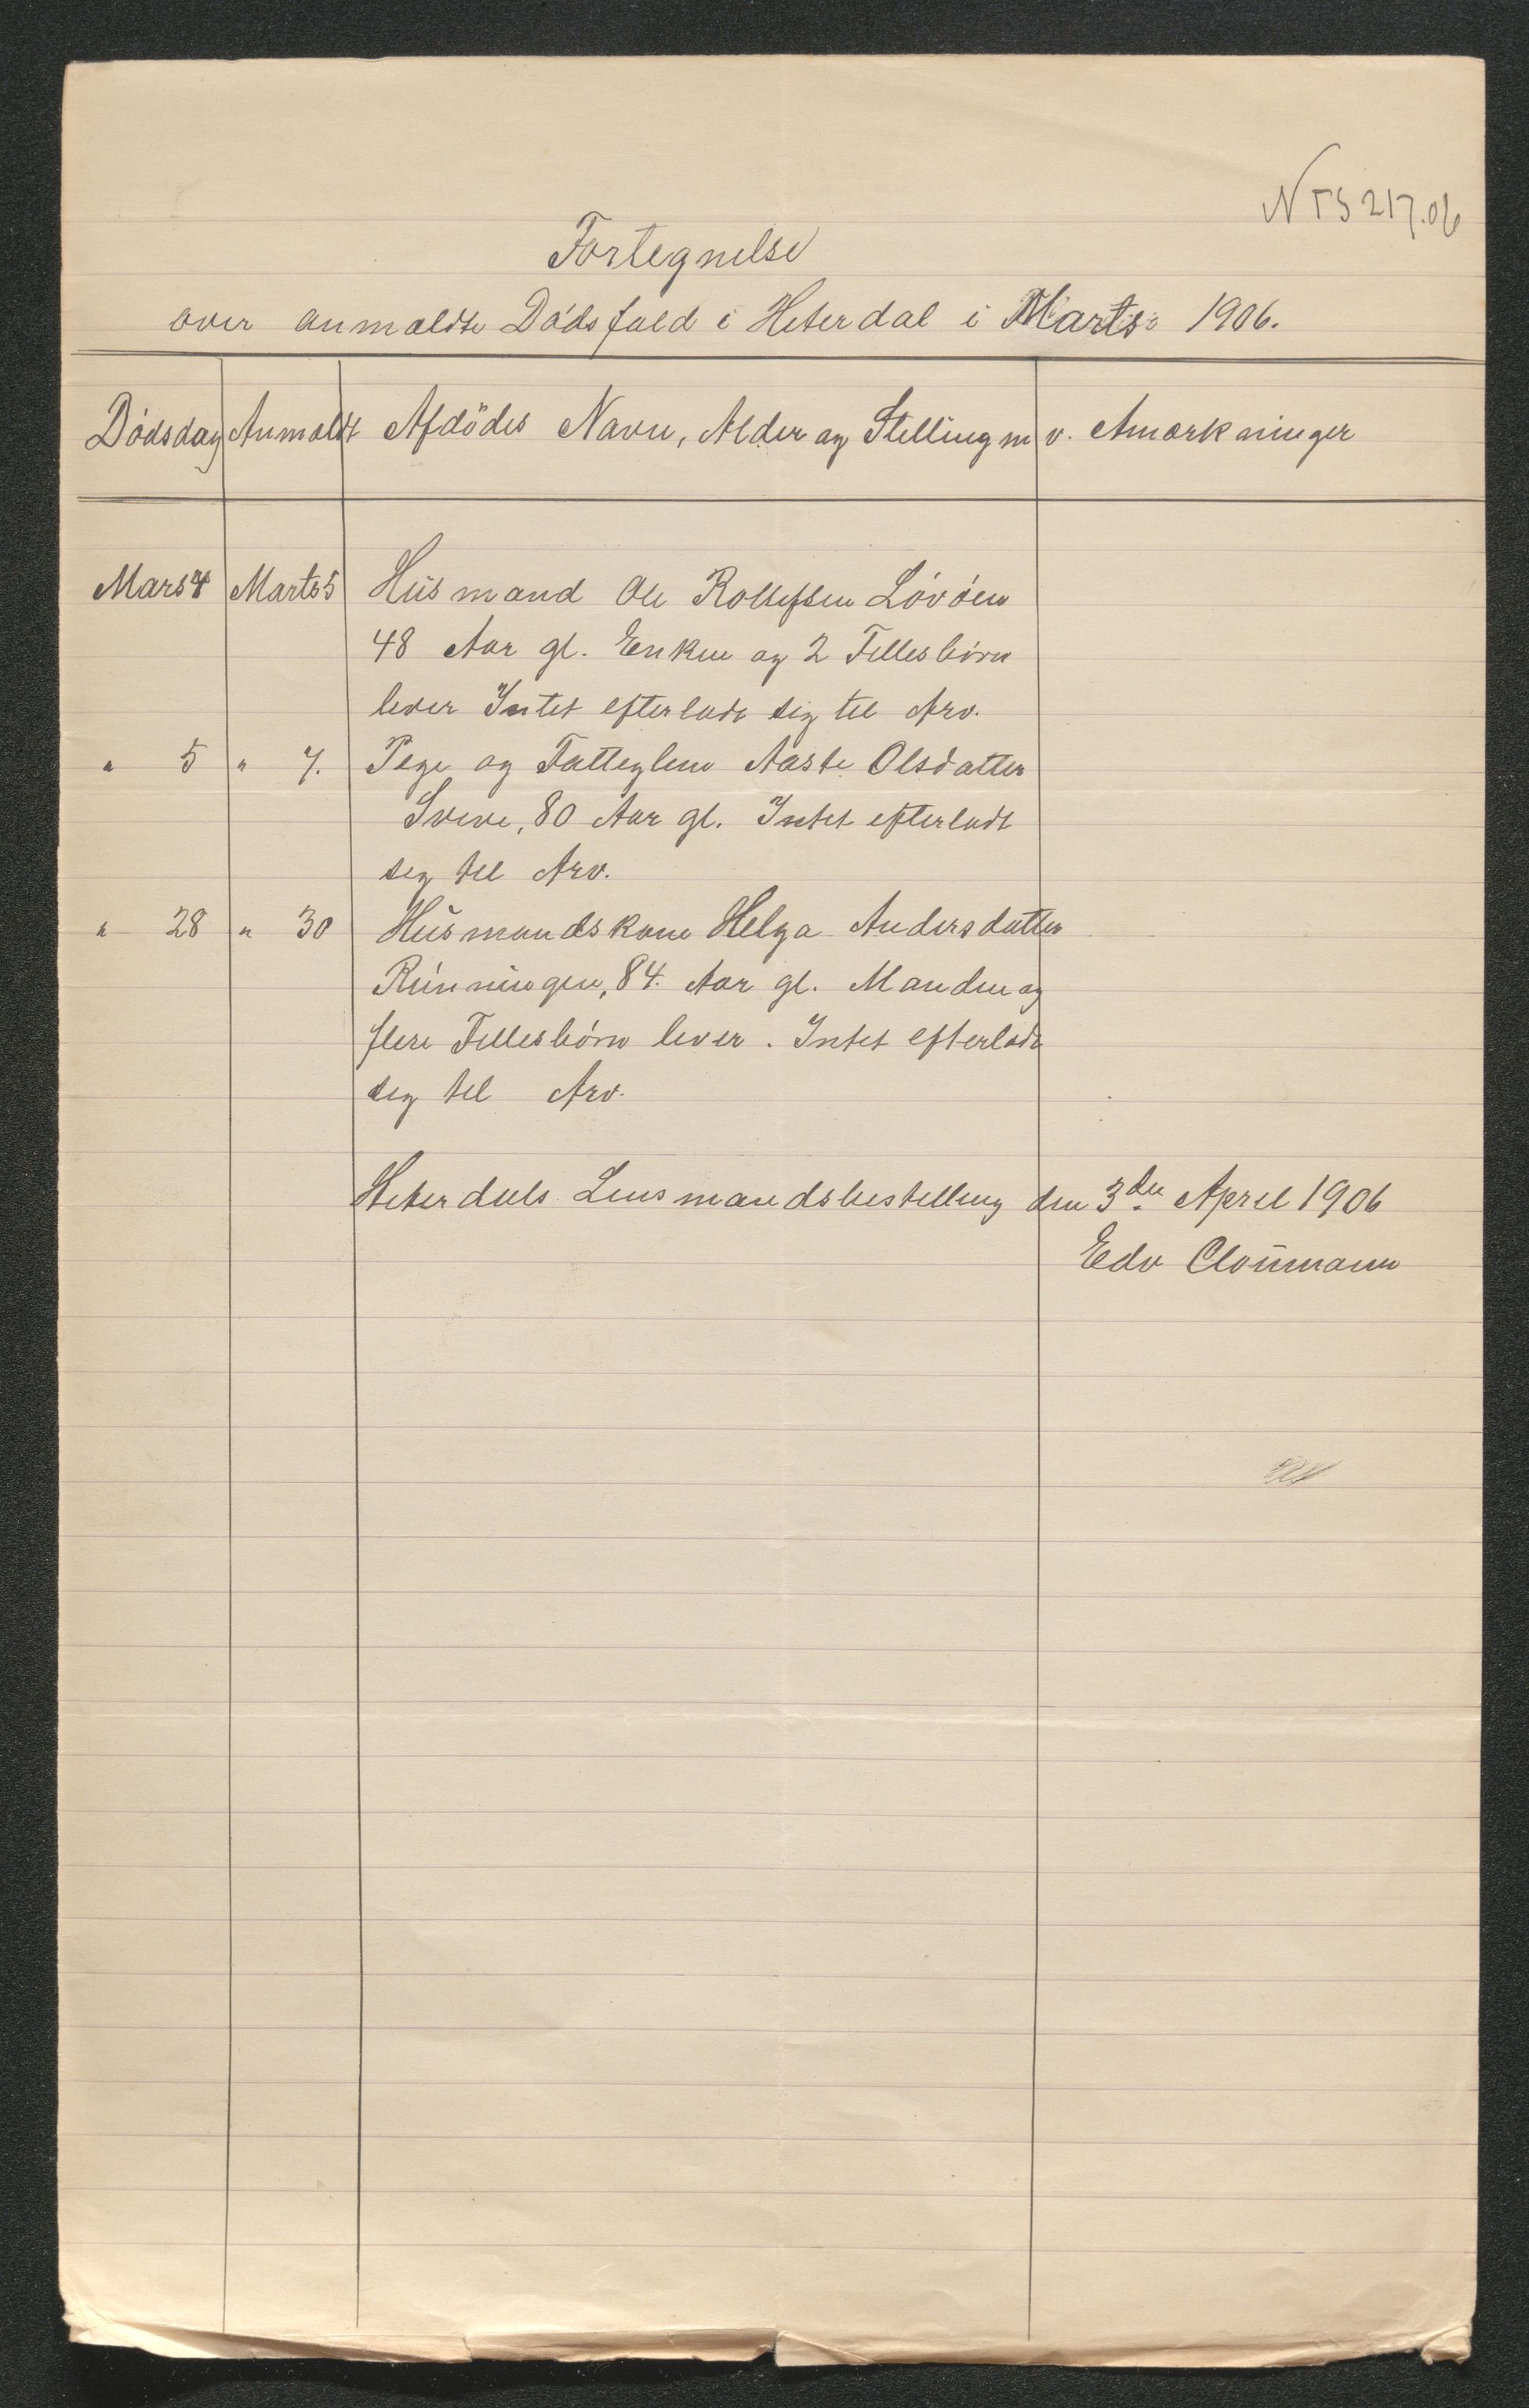 NTS 217.06
Fortegnelse
over anmeldte Dødsfald i Heterdal i Marts 1906.
Dødsdag Anmeldt Afdødes Navn, Alder og Stilling m v. Anmærkninger
Mars 4 Marts 5 Husmand Ole Rollefsen Løvøen
48 Aar gl. Enken og 2 Fellesbørn
lever Intet efterladt sig til Arv.
" 5 " 7. Pige og Fatteglem Aaste Olsdatter
Sveve, 80 Aar gl. Intet efterladt
sig til Arv.
" 28 " 30 Husmandskone Helga Andersdatter
Runningen, 84. Aar gl. Manden og
flere Fellesbørn lever. Intet efterladt
sig til Arv.
Heterdals Lensmandsbestilling den 3den April 1906
Edv Cloumann